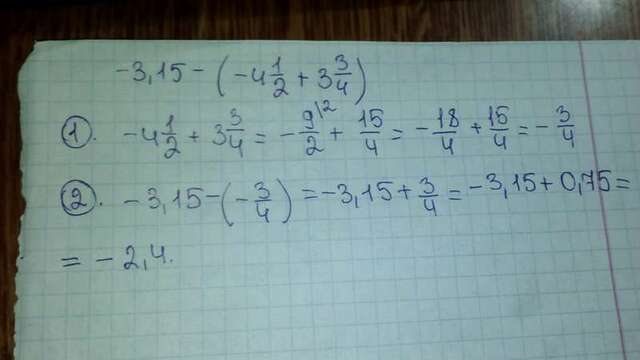 -3,15 - (-4 1/2 + 3 3/4)
①. -4 1/2 + 3 3/4 = - 9\2/2 + 15/4 = - 18/4 + 15/4 = - 3/4
②. -3,15 - (- 3/4) = -3,15 + 3/4 = -3,15 + 0,75 =
= - 2,4.